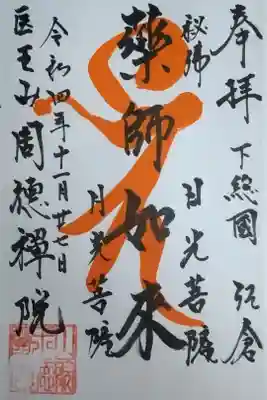 奉拝 下総國 佐倉
秘佛 日光菩薩
藥師如来
月光菩薩
令和四年十一月廿七日
医王山周徳禅院